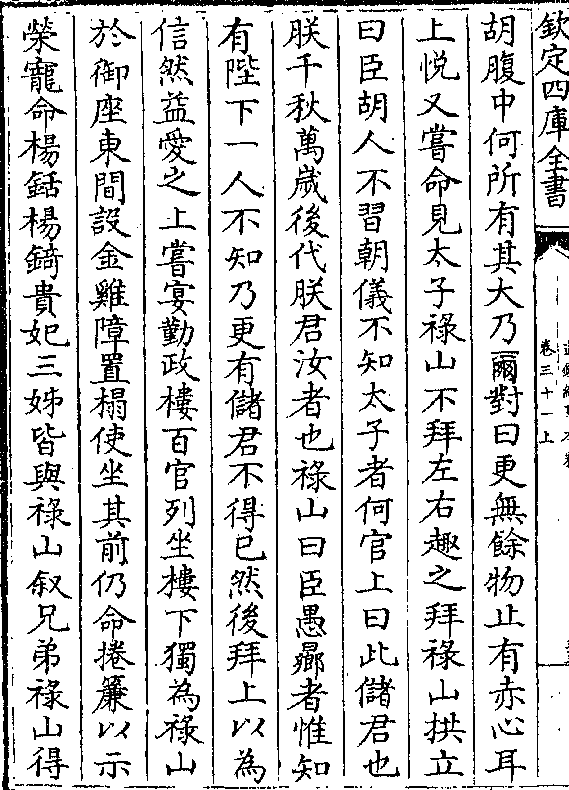 欽定四庫全書
卷三十一上
胡腹中何所有其大乃爾對曰更無餘物止有赤心耳
上悦又嘗命見太子祿山不拜左右趣之拜祿山拱立
曰臣胡人不習朝儀不知太子者何官上曰此儲君也
朕千秋萬歲後代朕君汝者也祿山曰臣愚曏者惟知
有陛下一人不知乃更有儲君不得已然後拜上以為
信然益愛之上嘗宴勤政樓百官列坐樓下獨為祿山
於御座東間設金雞障置榻使坐其前仍命捲簾以示
榮寵命楊銛楊錡貴妃三姊皆與祿山叙兄弟祿山得